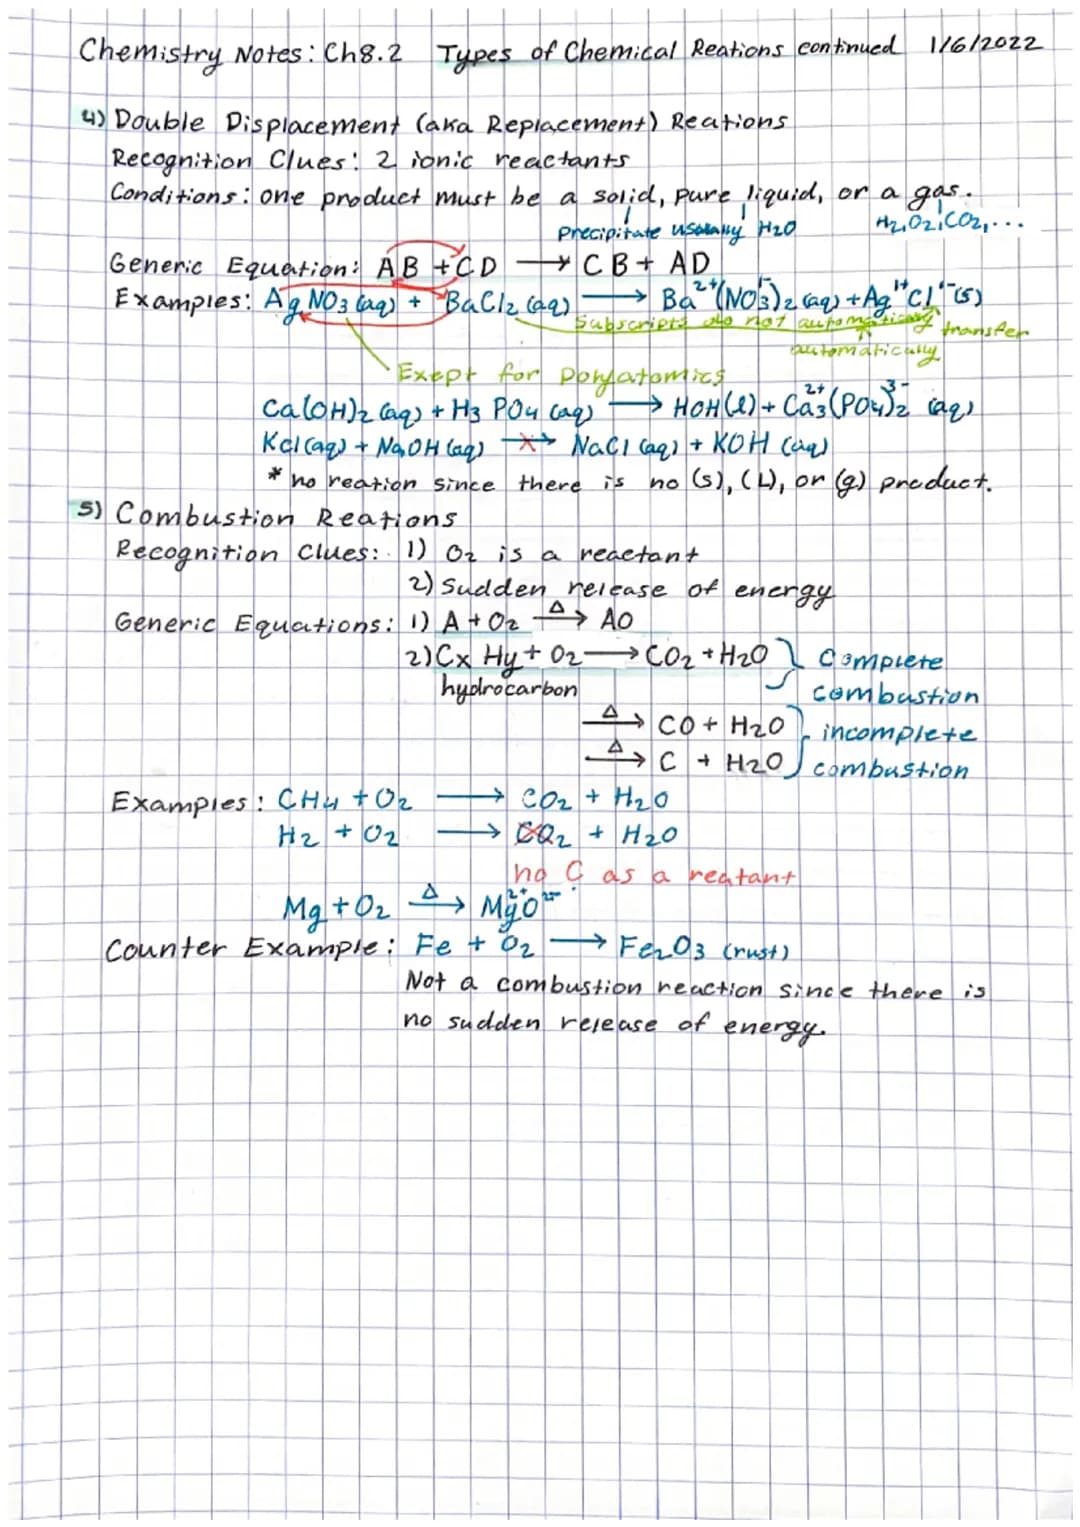 Chemistry Notes: Ch8.2 Types of Chemical Reations continued 1/6/2022
4) Double Displacement (aka Replacement) Reations
Recognition Clues: 2 ionic reactants
Conditions: one product must be a solid, pure liquid, or a gas.
Precipitate usually H2O H2, O2, CO2, ...
Generic Equation: AB + CD → CB + AD
Examples: AgNO3 (aq) + BaCl2 (aq) → Ba²⁺(NO3¹⁻)2 (aq) + Ag¹⁺Cl¹⁻(s)
Subscripts do not automatically transfer
automatically
Exept for Polyatomics
Ca(OH)2 (aq) + H3 PO4 (aq) → HOH(l) + Ca3²⁺(PO4)2³⁻ (aq)
Kcl (aq) + NaOH (aq) → NaCl (aq) + KOH (aq)
* no reation since there is no (s), (L), or (g) product.
5) Combustion Reations
Recognition Clues: 1) O2 is a reactant
2) Sudden release of energy
Generic Equations: 1) A + O2 Δ→ AO
2) Cx Hy + O2 → CO2 + H2O } complete
hydrocarbon combustion
Δ→ CO + H2O } incomplete
Δ→ C + H2O combustion
Examples: CH4 + O2 → CO2 + H2O
H2 + O2 → CO2 + H2O
no C as a reatant
Mg + O2 Δ→ Mg²⁺O²⁻
Counter Example: Fe + O2 → Fe2O3 (rust)
Not a combustion reaction since there is
no sudden release of energy.